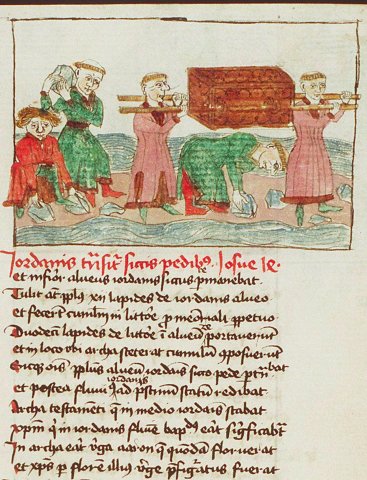 Iordanis trãsit̃ siccis pedib9. Iosue
et inferior alueus iordanis siccus pmanebat.
Tulit aũt pplus xij lapides de iordanis alueo
et fecer̃t cumulũ in littore p memoriali ppetuo
Duodeci lapides de littore ĩ alueũ portauerunt
et in loco vbi archa steterat cumulũ cõposuerunt
Sicq3 oĩs pplus alueũ iordanis sicco pede ptrãsibat
et postea fluuius iordanis ad pstinum statũ redibat
Archa testamenti q̃ in medio iordanis stabat
xpm q̃ in iordanis flumine bap significabat
In archa erat virga aaron que quondã floruerat
et xps p florem illius virge pfiguratus fuerat